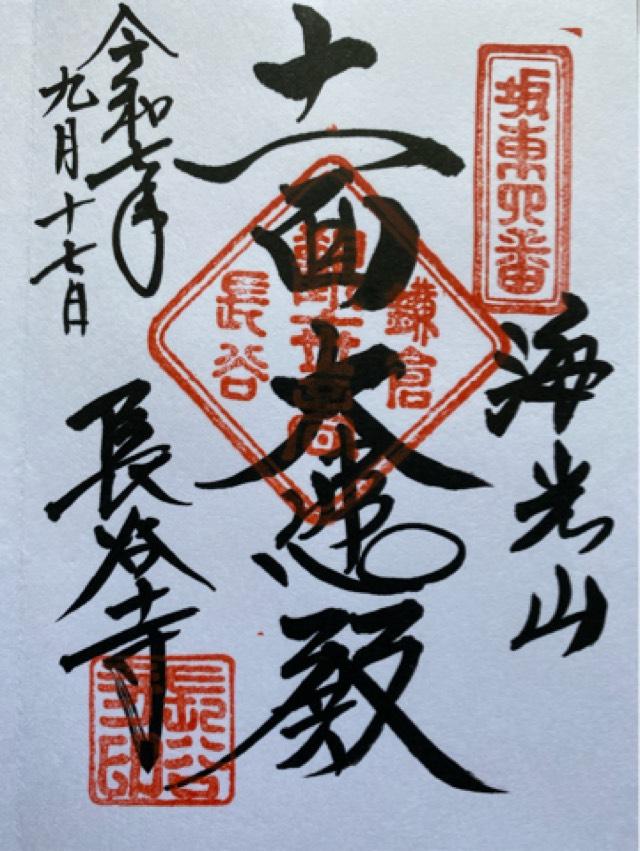 坂東四番
海光山
十一面大悲殿
鎌倉
長谷
令和七年
九月十七日
長谷寺
長谷寺印